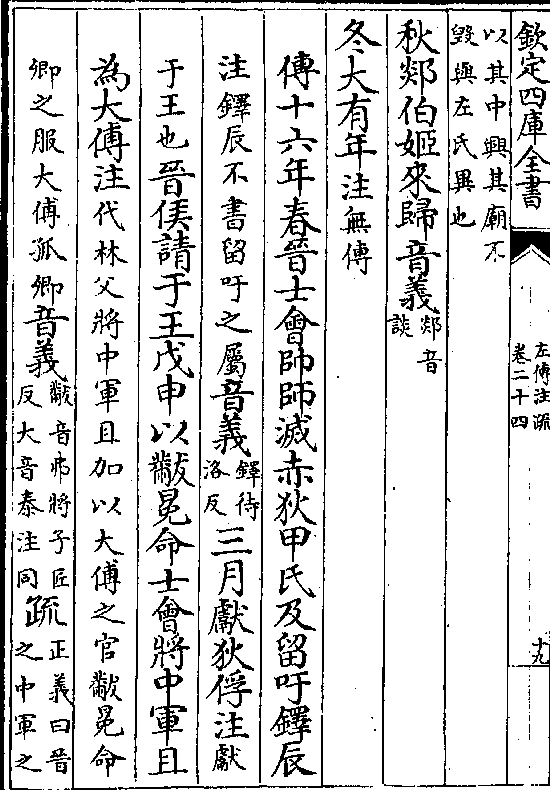 欽定四庫全書
左傳注疏
卷二十四
十九
以其中興其廟不
毀與左氏異也
秋郯伯姬來歸音義郯音
談
冬大有年注無傳
傳十六年春晉士會帥師滅赤狄甲氏及留吁鐸辰
注鐸辰不書留吁之屬音義鐸待
洛反三月獻狄俘注獻
于王也晉侯請于王戊申以黻冕命士會將中軍且
為大傅注代林父將中軍且加以大傅之官黻冕命
卿之服大傅孤卿音義黻音弗將子匠
反大音泰注同疏正義曰晉
之中軍之